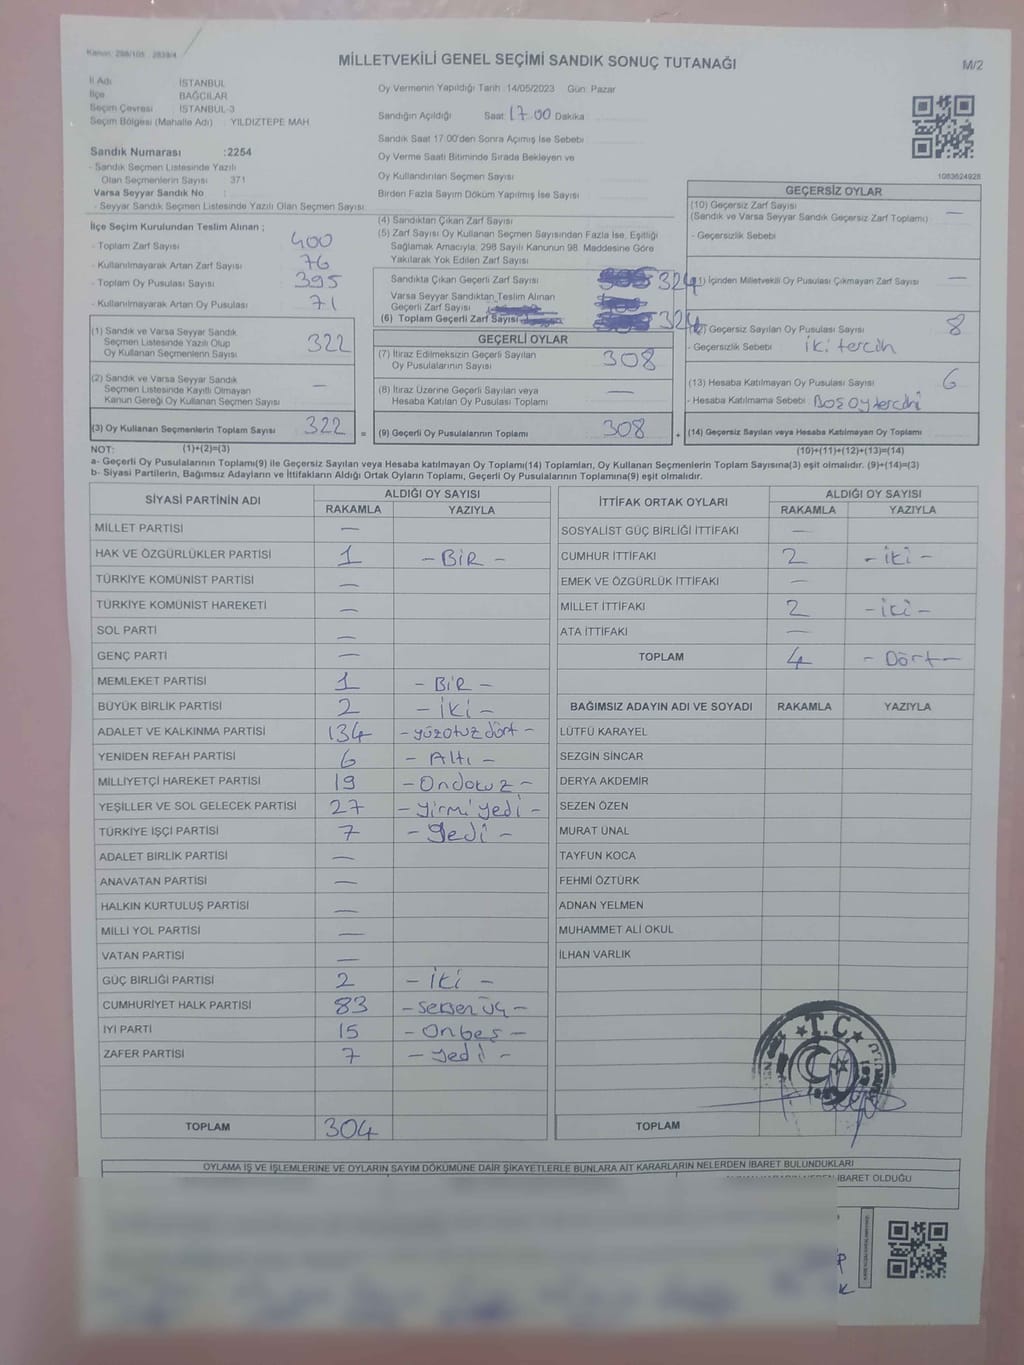 Kanun: 298/105 2839/4
MİLLETVEKİLİ GENEL SEÇİMİ SANDIK SONUÇ TUTANAĞI
M/2
İl Adı İSTANBUL
İlçe BAĞCILAR
Seçim Çevresi İSTANBUL-3
Seçim Bölgesi (Mahalle Adı) : YILDIZTEPE MAH
Oy Vermenin Yapıldığı Tarih :14/05/2023 Gün: Pazar
Sandığın Açıldığı Saat 17.00 Dakika
Sandık Saat 17:00'den Sonra Açılmış İse Sebebi
Oy Verme Saati Bitiminde Sırada Bekleyen ve
Oy Kullandırılan Seçmen Sayısı
Birden Fazla Sayım Döküm Yapılmış İse Sayısı
1083624928
Sandık Numarası :2254
- Sandık Seçmen Listesinde Yazılı
Olan Seçmenlerin Sayısı 371
Varsa Seyyar Sandık No :
- Seyyar Sandık Seçmen Listesinde Yazılı Olan Seçmen Sayısı
İlçe Seçim Kurulundan Teslim Alınan ;
- Toplam Zarf Sayısı 400
- Kullanılmayarak Artan Zarf Sayısı 76
- Toplam Oy Pusulası Sayısı 395
- Kullanılmayarak Artan Oy Pusulası 71
(1) Sandık ve Varsa Seyyar Sandık
Seçmen Listesinde Yazılı Olup
Oy Kullanan Seçmenlerin Sayısı 322
(2) Sandık ve Varsa Seyyar Sandık
Seçmen Listesinde Kayıtlı Olmayan
Kanun Gereği Oy Kullanan Seçmen Sayısı —
(3) Oy Kullanan Seçmenlerin Toplam Sayısı 322 =
(4) Sandıktan Çıkan Zarf Sayısı
(5) Zarf Sayısı Oy Kullanan Seçmen Sayısından Fazla İse, Eşitliği
Sağlamak Amacıyla, 298 Sayılı Kanunun 98. Maddesine Göre
Yakılarak Yok Edilen Zarf Sayısı
Sandıkta Çıkan Geçerli Zarf Sayısı 324
Varsa Seyyar Sandıktan Teslim Alınan
Geçerli Zarf Sayısı
(6) Toplam Geçerli Zarf Sayısı 324
GEÇERLİ OYLAR
(7) İtiraz Edilmeksizin Geçerli Sayılan
Oy Pusulalarının Sayısı 308
(8) İtiraz Üzerine Geçerli Sayılan veya
Hesaba Katılan Oy Pusulası Toplamı —
(9) Geçerli Oy Pusulalarının Toplamı 308 +
GEÇERSİZ OYLAR
(10) Geçersiz Zarf Sayısı —
(Sandık ve Varsa Seyyar Sandık Geçersiz Zarf Toplamı)
- Geçersizlik Sebebi
(11) İçinden Milletvekili Oy Pusulası Çıkmayan Zarf Sayısı —
(12) Geçersiz Sayılan Oy Pusulası Sayısı 8
- Geçersizlik Sebebi iki tercih
(13) Hesaba Katılmayan Oy Pusulası Sayısı 6
- Hesaba Katılmama Sebebi Boş oy tercihi
(14) Geçersiz Sayılan veya Hesaba Katılmayan Oy Toplamı
NOT: (1)+(2)=(3)
(10)+(11)+(12)+(13)=(14)
a- Geçerli Oy Pusulalarının Toplamı(9) ile Geçersiz Sayılan veya Hesaba katılmayan Oy Toplamı(14) Toplamları, Oy Kullanan Seçmenlerin Toplam Sayısına(3) eşit olmalıdır. (9)+(14)=(3)
b- Siyasi Partilerin, Bağımsız Adayların ve İttifakların Aldığı Ortak Oyların Toplamı, Geçerli Oy Pusulalarının Toplamına(9) eşit olmalıdır.
SİYASİ PARTİNİN ADI ALDIĞI OY SAYISI
RAKAMLA YAZIYLA
MİLLET PARTİSİ —
HAK VE ÖZGÜRLÜKLER PARTİSİ 1 - BİR -
TÜRKİYE KOMÜNİST PARTİSİ —
TÜRKİYE KOMÜNİST HAREKETİ —
SOL PARTİ —
GENÇ PARTİ —
MEMLEKET PARTİSİ 1 - BİR -
BÜYÜK BİRLİK PARTİSİ 2 - iki -
ADALET VE KALKINMA PARTİSİ 134 - yüzotuz dört -
YENİDEN REFAH PARTİSİ 6 - Altı -
MİLLİYETÇİ HAREKET PARTİSİ 19 - Ondokuz -
YEŞİLLER VE SOL GELECEK PARTİSİ 27 - yirmi yedi -
TÜRKİYE İŞÇİ PARTİSİ 7 - yedi -
ADALET BİRLİK PARTİSİ —
ANAVATAN PARTİSİ —
HALKIN KURTULUŞ PARTİSİ —
MİLLİ YOL PARTİSİ —
VATAN PARTİSİ —
GÜÇ BİRLİĞİ PARTİSİ 2 - iki -
CUMHURİYET HALK PARTİSİ 83 - seksen üç -
İYİ PARTİ 15 - Onbeş -
ZAFER PARTİSİ 7 - yedi -
TOPLAM 304
İTTİFAK ORTAK OYLARI ALDIĞI OY SAYISI
RAKAMLA YAZIYLA
SOSYALİST GÜÇ BİRLİĞİ İTTİFAKI —
CUMHUR İTTİFAKI 2 - iki -
EMEK VE ÖZGÜRLÜK İTTİFAKI —
MİLLET İTTİFAKI 2 - iki -
ATA İTTİFAKI —
TOPLAM 4 - Dört -
BAĞIMSIZ ADAYIN ADI VE SOYADI RAKAMLA YAZIYLA
LÜTFÜ KARAYEL
SEZGİN SİNCAR
DERYA AKDEMİR
SEZEN ÖZEN
MURAT ÜNAL
TAYFUN KOCA
FEHMİ ÖZTÜRK
ADNAN YELMEN
MUHAMMET ALİ OKUL
İLHAN VARLIK
T.C.
TOPLAM
OYLAMA İŞ VE İŞLEMLERİNE VE OYLARIN SAYIM DÖKÜMÜNE DAİR ŞİKAYETLERLE BUNLARA AİT KARARLARIN NELERDEN İBARET BULUNDUKLARI
İBARET OLDUĞU